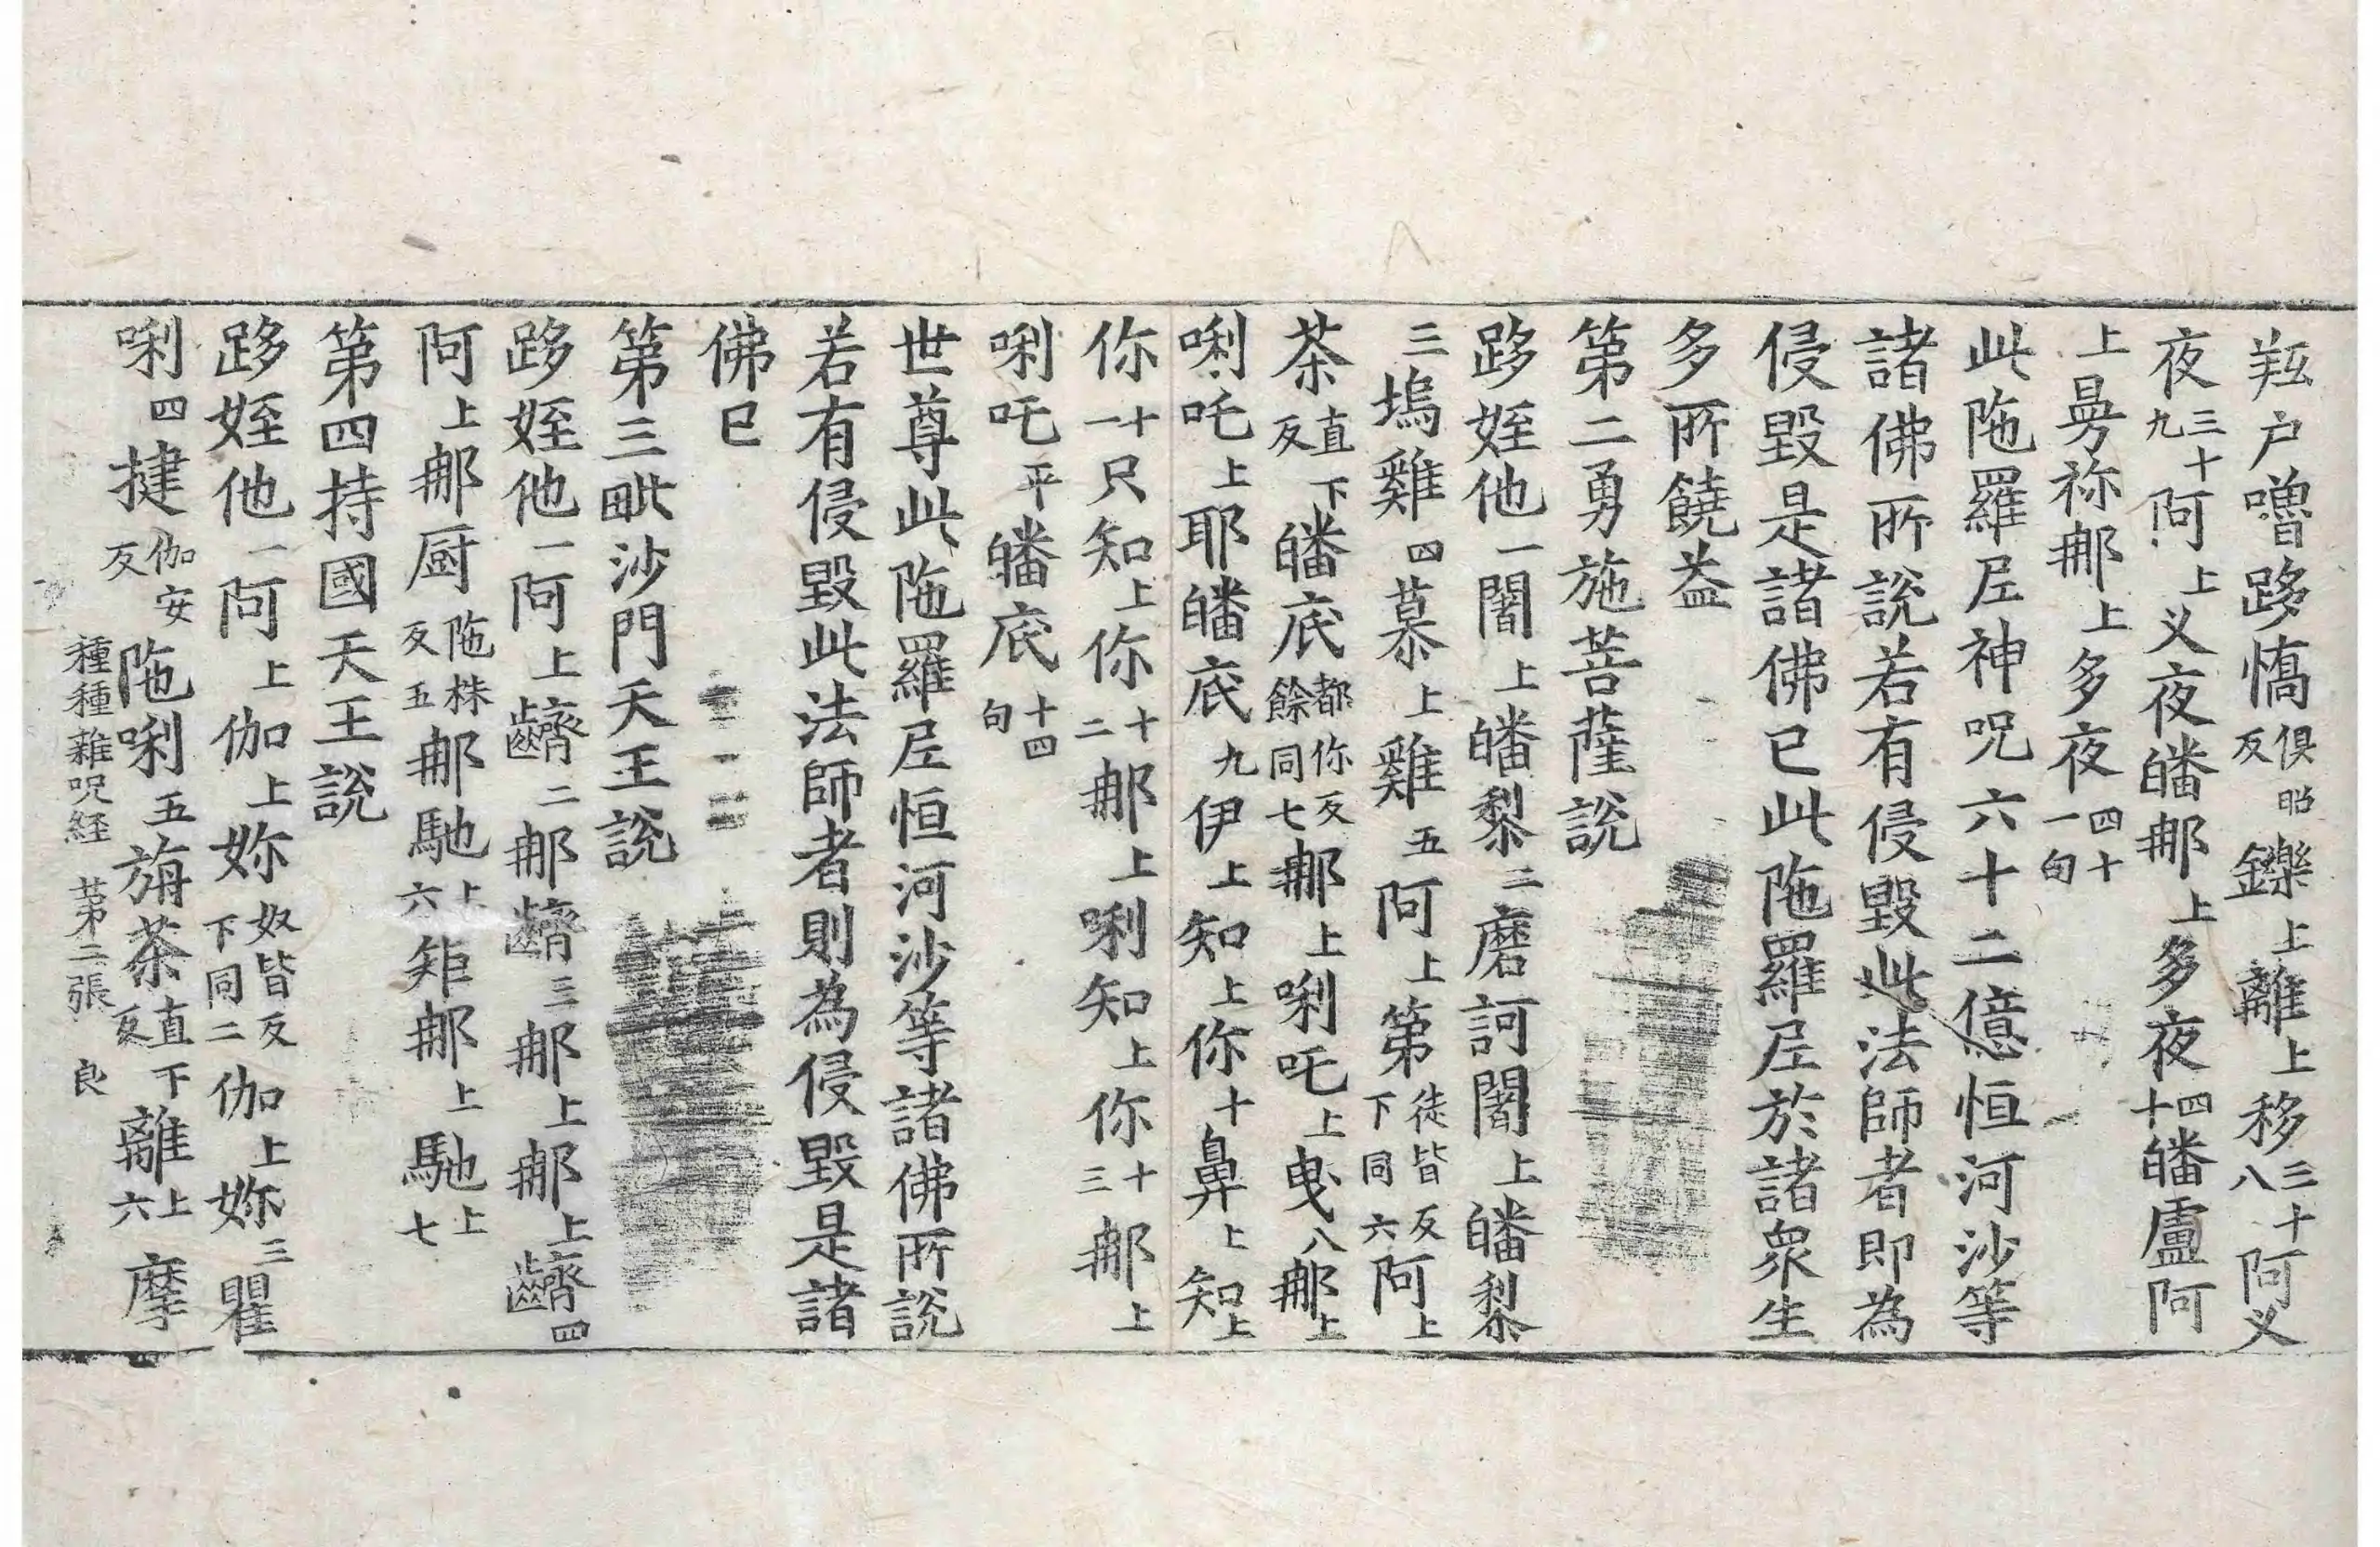 䍴户嚕跢憍俱昭反鑠上離上移三十八阿义
夜三十九阿上义夜皤㖠上多夜四十皤盧阿
上㝵祢㖠上多夜四十一句
此陁羅尼神呪六十二億恒河沙等
諸佛所說若有侵毀此法師者即為
侵毀是諸佛已此陁羅尼於諸衆生
多所饒益
第二勇施菩薩說
跢姪他一闍上皤黎二磨訶闍上皤黎
三塢雞四慕上雞五阿上第徒皆反下同六阿上
茶直下反皤底都你反餘同七㖠上唎吒上曳八㖠上
唎吒上耶皤底九伊上知上你十鼻上知上
你十一只知上你十二㖠上唎知上你十三㖠上
唎吒平皤底十四句
世尊此陁羅尼恒河沙等諸佛所說
若有侵毀此法師者則為侵毀是諸
佛已
第三毗沙門天王說
跢姪他一阿上齌二㖠齌三㖠上㖠上齌四
阿上㖠厨陁株反五㖠馳上六矩㖠上馳上七
第四持國天王說
跢姪他一阿上伽上妳奴皆反下同二伽上妳三瞿
唎四揵伽安反陁唎五旃茶直下反離上六摩
種種雜呪経 第二張 良